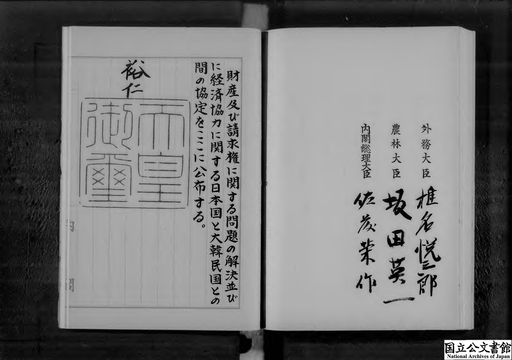 外務大臣 椎名悦三郎
農林大臣 坂田英一
内閣總理大臣 佐藤栄作
財産及び請求権に関する問題の解決並び
に経済協力に関する日本国と大韓民国との
間の協定をここに公布する。
裕仁
天皇
御璽
国立公文書館
National Archives of Japan